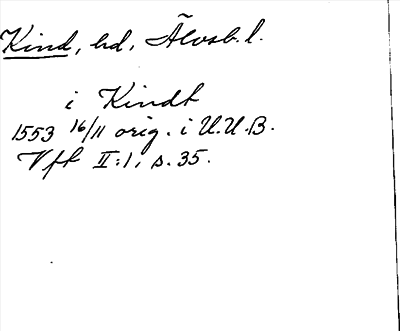 Kind, hd, Älvsb. l.
i Kindh
1553 16/11 orig. i U.U.B.
Vfh II:1, s. 35.